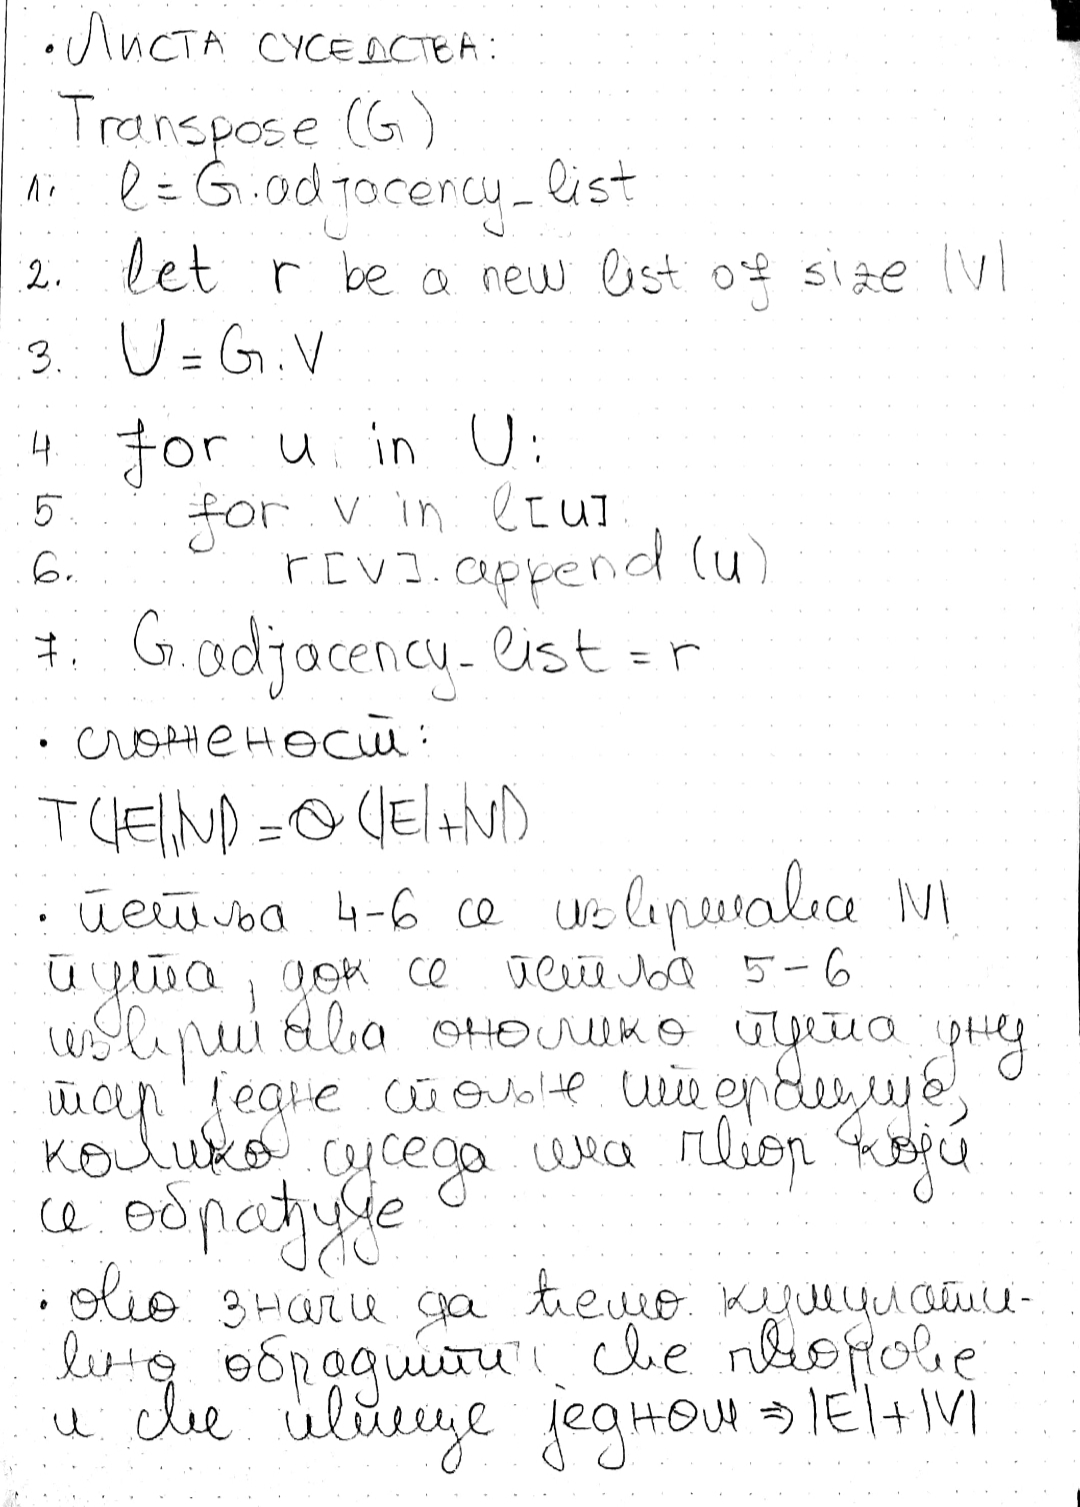 • Листа суседства:
Transpose (G)
1. l = G.adjacency_list
2. let r be a new list of size |V|
3. U = G.V
4 for u in U:
5. for v in l[u]
6. r[v].append(u)
7. G.adjacency_list = r
• сложеност:
T(|E|,|V|) = Θ(|E|+|V|)
• петља 4-6 се извршава |V|
пута, док се петља 5-6
извршава онолико пута уну
тар једне спољне итерације,
колико суседа има чвор који
се обрађује
• ово значи да ћемо кумулати-
вно обрадити све чворове
и све ивице једном ⇒ |E|+|V|